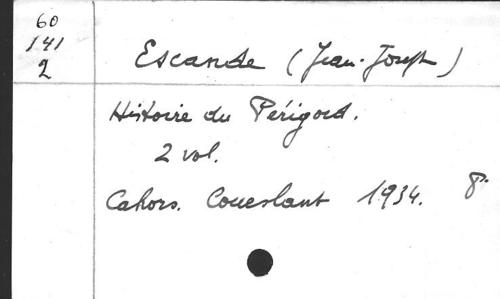 60
141
2
Escande (Jean-Joseph)
Histoire du Périgord.
2 vol.
Cahors. Coueslant 1934. 8°